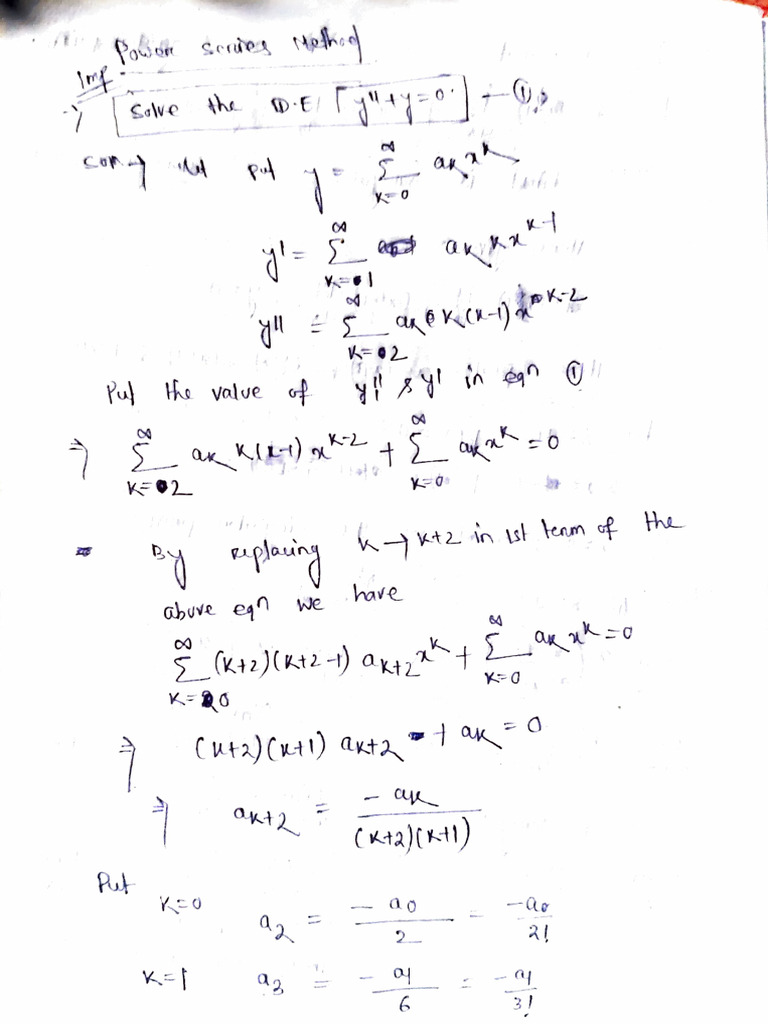 Power Series Method
Imp
→ Solve the D.E [y'' + y = 0] — ①
put y = ∑_{k=0}^{∞} a_k x^k
y' = ∑_{k=1}^{∞} a_k k x^{k-1}
y'' = ∑_{k=2}^{∞} a_k k(k-1) x^{k-2}
Put the value of y'' & y' in eqn ①
⇒ ∑_{k=2}^{∞} a_k k(k-1) x^{k-2} + ∑_{k=0}^{∞} a_k x^k = 0
By replacing k → k+2 in 1st term of the
above eqn we have
∑_{k=0}^{∞} (k+2)(k+2-1) a_{k+2} x^k + ∑_{k=0}^{∞} a_k x^k = 0
⇒ (k+2)(k+1) a_{k+2} + a_k = 0
⇒ a_{k+2} = -a_k / (k+2)(k+1)
Put
k=0 a_2 = -a_0 / 2 = -a_0 / 2!
k=1 a_3 = -a_1 / 6 = -a_1 / 3!